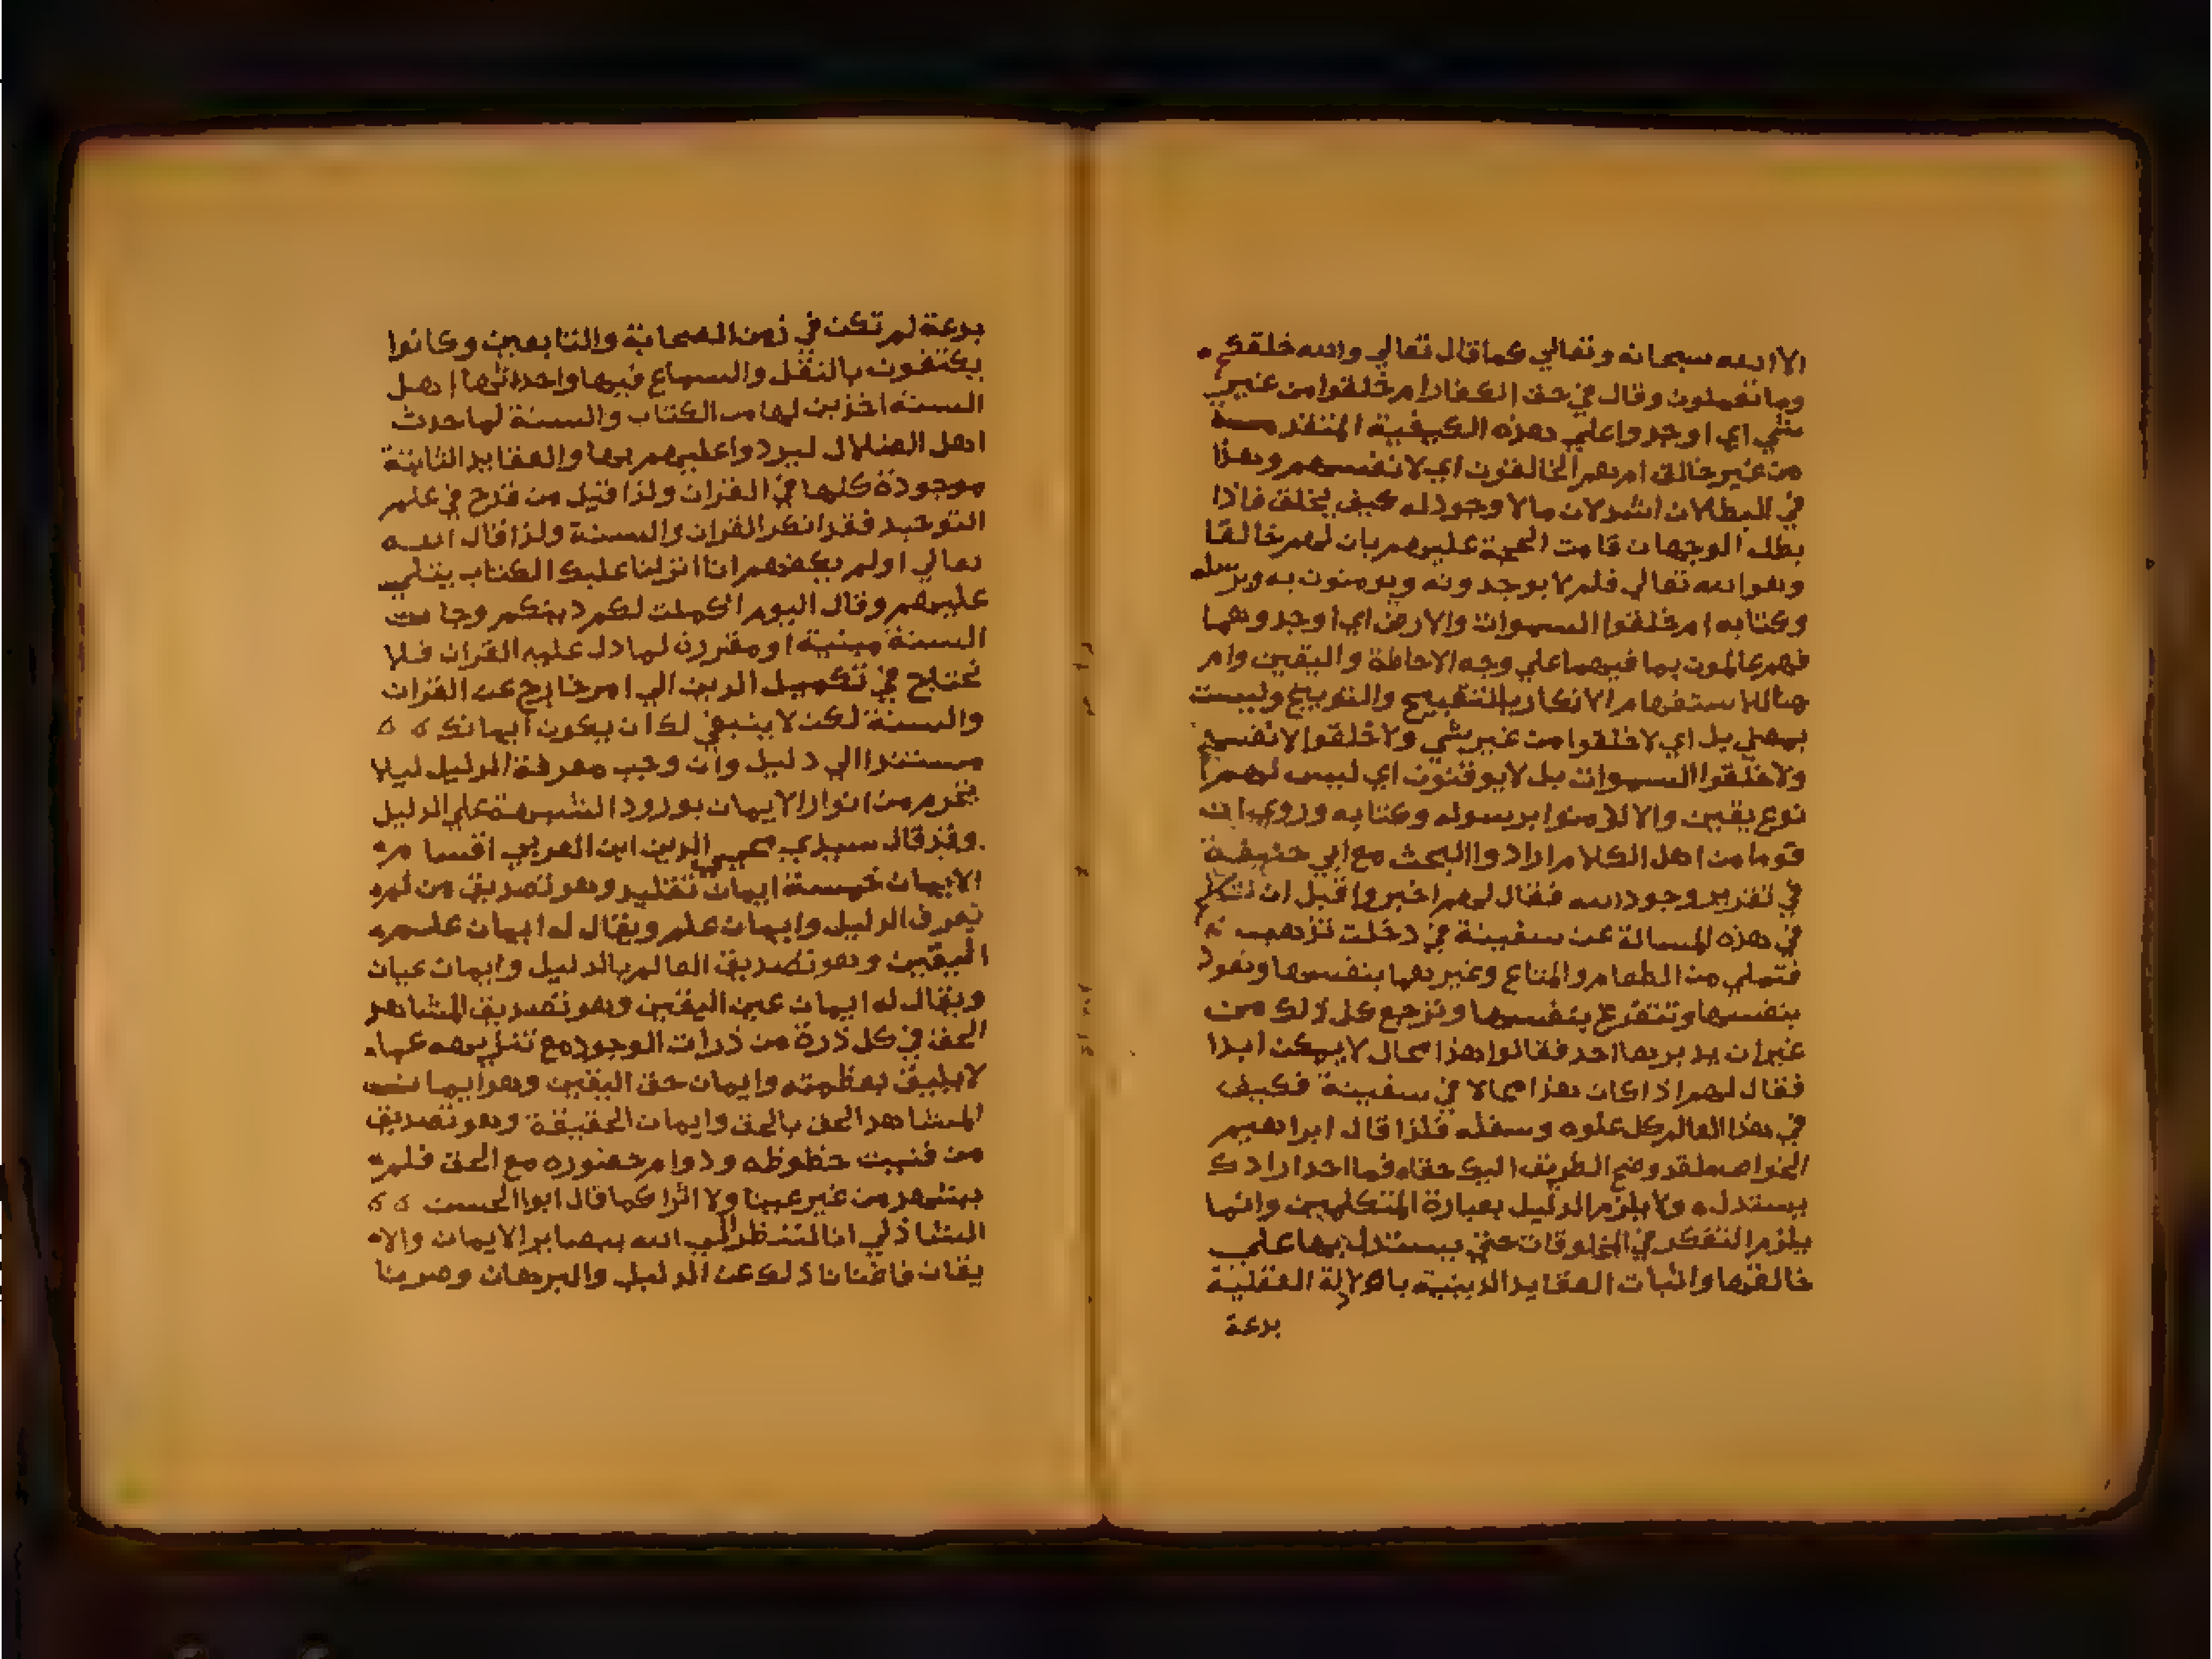 الا الله سبحانه وتعالي كما قال تعالي والله خلقكم
وما تعملون وقال في حق الكفار ام خلقوا من غير
شي اي اوجدوا علي هذه الكيفية المتقد
من غير خالق ام هم الخالقون اي لانفسهم وهذا
في البطلان اشد لان مالا وجود له كيف يخلق فاذا
بطل الوجهان قامت الحجة عليهم بان لهم خالقا
وهو الله تعالي فلم لا يوحدونه ويومنون به وبرسله
وكتابه ام خلقوا السموات والارض اي اوجدوهما
فهم عالمون بما فيهما علي وجه الاحاطة واليقين وام
هنا للاستفهام الانكار بالتقبيح والتوبيخ وليست
بمعني بل اي لا خلقوا من غير شي ولا خلقوا لانفسهم
ولا خلقوا السموات بل لا يوقنون اي ليس لهم
نوع يقين والا لامنوا برسوله وكتابه وروي ان
قوما من اهل الكلام ارادوا البحث مع ابي حنيفة
في تقرير وجود الله فقال لهم اخبروا قبل ان نتكلم
في هذه المسالة عن سفينة في دخلت تذهب
فتملي من الطعام والمتاع وغيرهما بنفسها وتعود
بنفسها وتتفرغ بنفسها وترجع كل ذلك من
غير ان يدبرها احد فقالوا هذا محال لا يمكن ابدا
فقال لهم اذا كان هذا محالا في سفينة فكيف
في هذا العالم كل علوه وسفله فلذا قال ابراهيم
الخواص لقد وضح الطريق اليك حقا فما احد ارادك
يستدل ولا يلزم الدليل بعبارة المتكلمين وانما
يلزم التفكر في المخلوقات حتي يستدل بها علي
خالقها واثبات العقايد الدينية بالادلة العقلية
بدعة
بدعة لم تكن في زمن الصحابة والتابعين وكانوا
يكتفون بالنقل والسماع فيها واحدثها اهل
السنة اخذين لها من الكتاب والسنة لما حدث
اهل الضلال ليردوا عليهم بها والعقايد الثابتة
موجودة كلها في القران ولذا قيل من قدح في علم
التوحيد فقد انكر القران والسنة ولذا قال الله
تعالي اولم يكفهم انا انزلنا عليك الكتاب يتلي
عليهم وقال اليوم اكملت لكم دينكم وجات
السنة مبينة او مقررة لما دل عليه القران فلا
نحتاج في تكميل الدين الي امر خارج عن القران
والسنة لكن لا ينبغي لك ان يكون ايمانك
مستندا الي دليل وان وجب معرفة الدليل ليلا
يخرم من انوار الايمان بورود الشبهة علي الدليل
وقد قال سيدي محيي الدين ابن العربي اقسام
الايمان خمسة ايمان تقليد وهو تصديق من لم
يعرف الدليل وايمان علم ويقال له ايمان علم
اليقين وهو تصديق العالم بالدليل وايمان عيان
ويقال له ايمان عين اليقين وهو تصديق المشاهد
الحق في كل ذرة من ذرات الوجود مع تنزيهه عما
لا يليق بعظمته وايمان حق اليقين وهو ايمان
المشاهد الحق بالحق وايمان الحقيقة وهو تصديق
من فنيت حظوظه ودوام حضوره مع الحق فلم
يشهد من غير عينا ولا اثرا كما قال ابوا الحسن
الشاذلي انا لننظر الي الله ببصاير الايمان والا
يقان فاغنانا ذلك عن الدليل والبرهان وصرنا